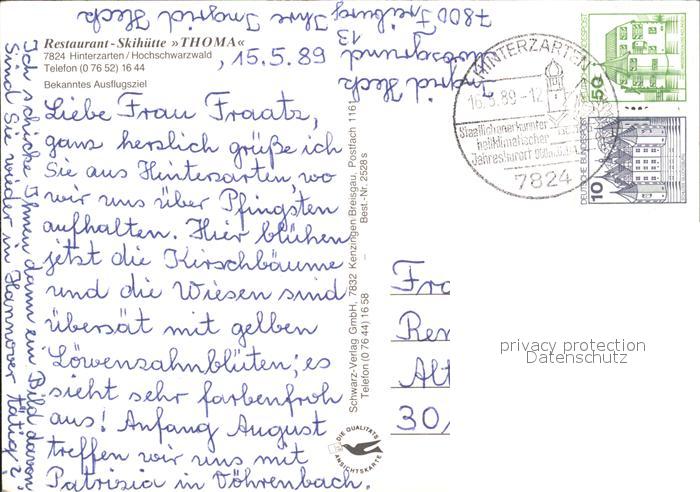 Restaurant-Skihütte »THOMA«
7824 Hinterzarten/Hochschwarzwald
Telefon (0 76 52) 16 44
Bekanntes Ausflugsziel
, 15.5.89
Liebe Frau Fraatz,
ganz herzlich grüße ich
Sie aus Hinterzarten, wo
wir uns über Pfingsten
aufhalten. Hier blühen
jetzt die Kirschbäume
und die Wiesen sind
übersät mit gelben
Löwenzahnblüten; es
sieht sehr farbenfroh
aus! Anfang August
treffen wir uns mit
Patrizia in Vöhrenbach.
Ich schicke Ihnen dann ein Bild davon
Sind Sie wieder in Hannover tätig?
Ihre Ingrid Heck
Ingrid Heck
13
7800 Freiburg
Schwarz-Verlag GmbH, 7832 Kenzingen/Breisgau, Postfach 1161
Telefon (0 76 44) 16 58 – Best.-Nr. 2528 s
DIE QUALITÄTS
ANSICHTSKARTE
HINTERZARTEN
16.5.89-12
Staatlich anerkannter
heilklimatischer
Jahreskurort
7824
DEUTSCHE BUNDESPOST
50
DEUTSCHE BUNDESPOST
10
Fra
Ren
Alt
30
privacy protection
Datenschutz